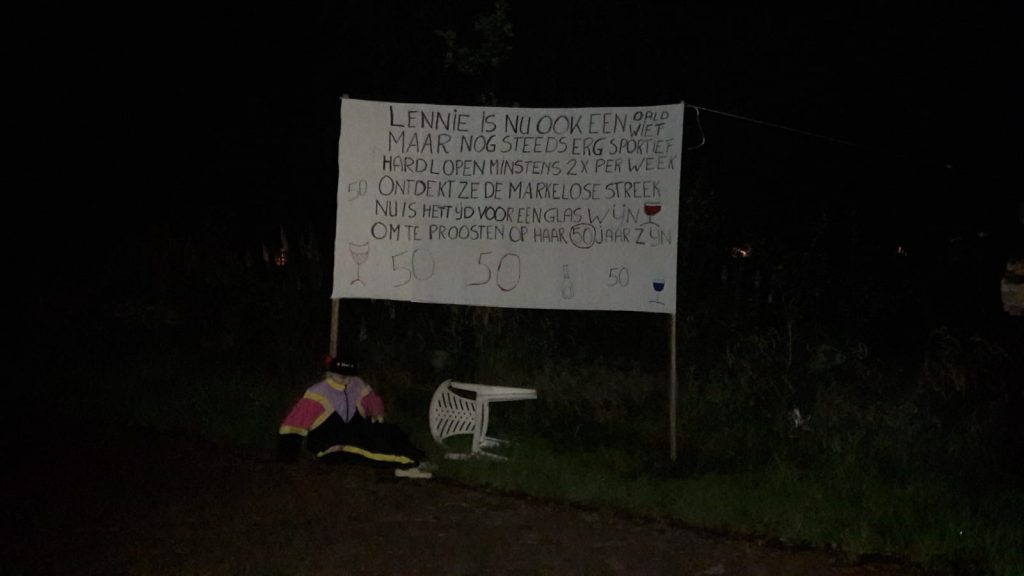 LENNIE IS NU OOK EEN OALD WIEF
MAAR NOG STEEDS ERG SPORTIEF
HARDLOPEN MINSTENS 2X PER WEEK
50 ONTDEKT ZE DE MARKELOSE STREEK
NU IS HET TIJD VOOR EEN GLAS WIJN
OM TE PROOSTEN OP HAAR 50 JAAR ZIJN
50 50 50